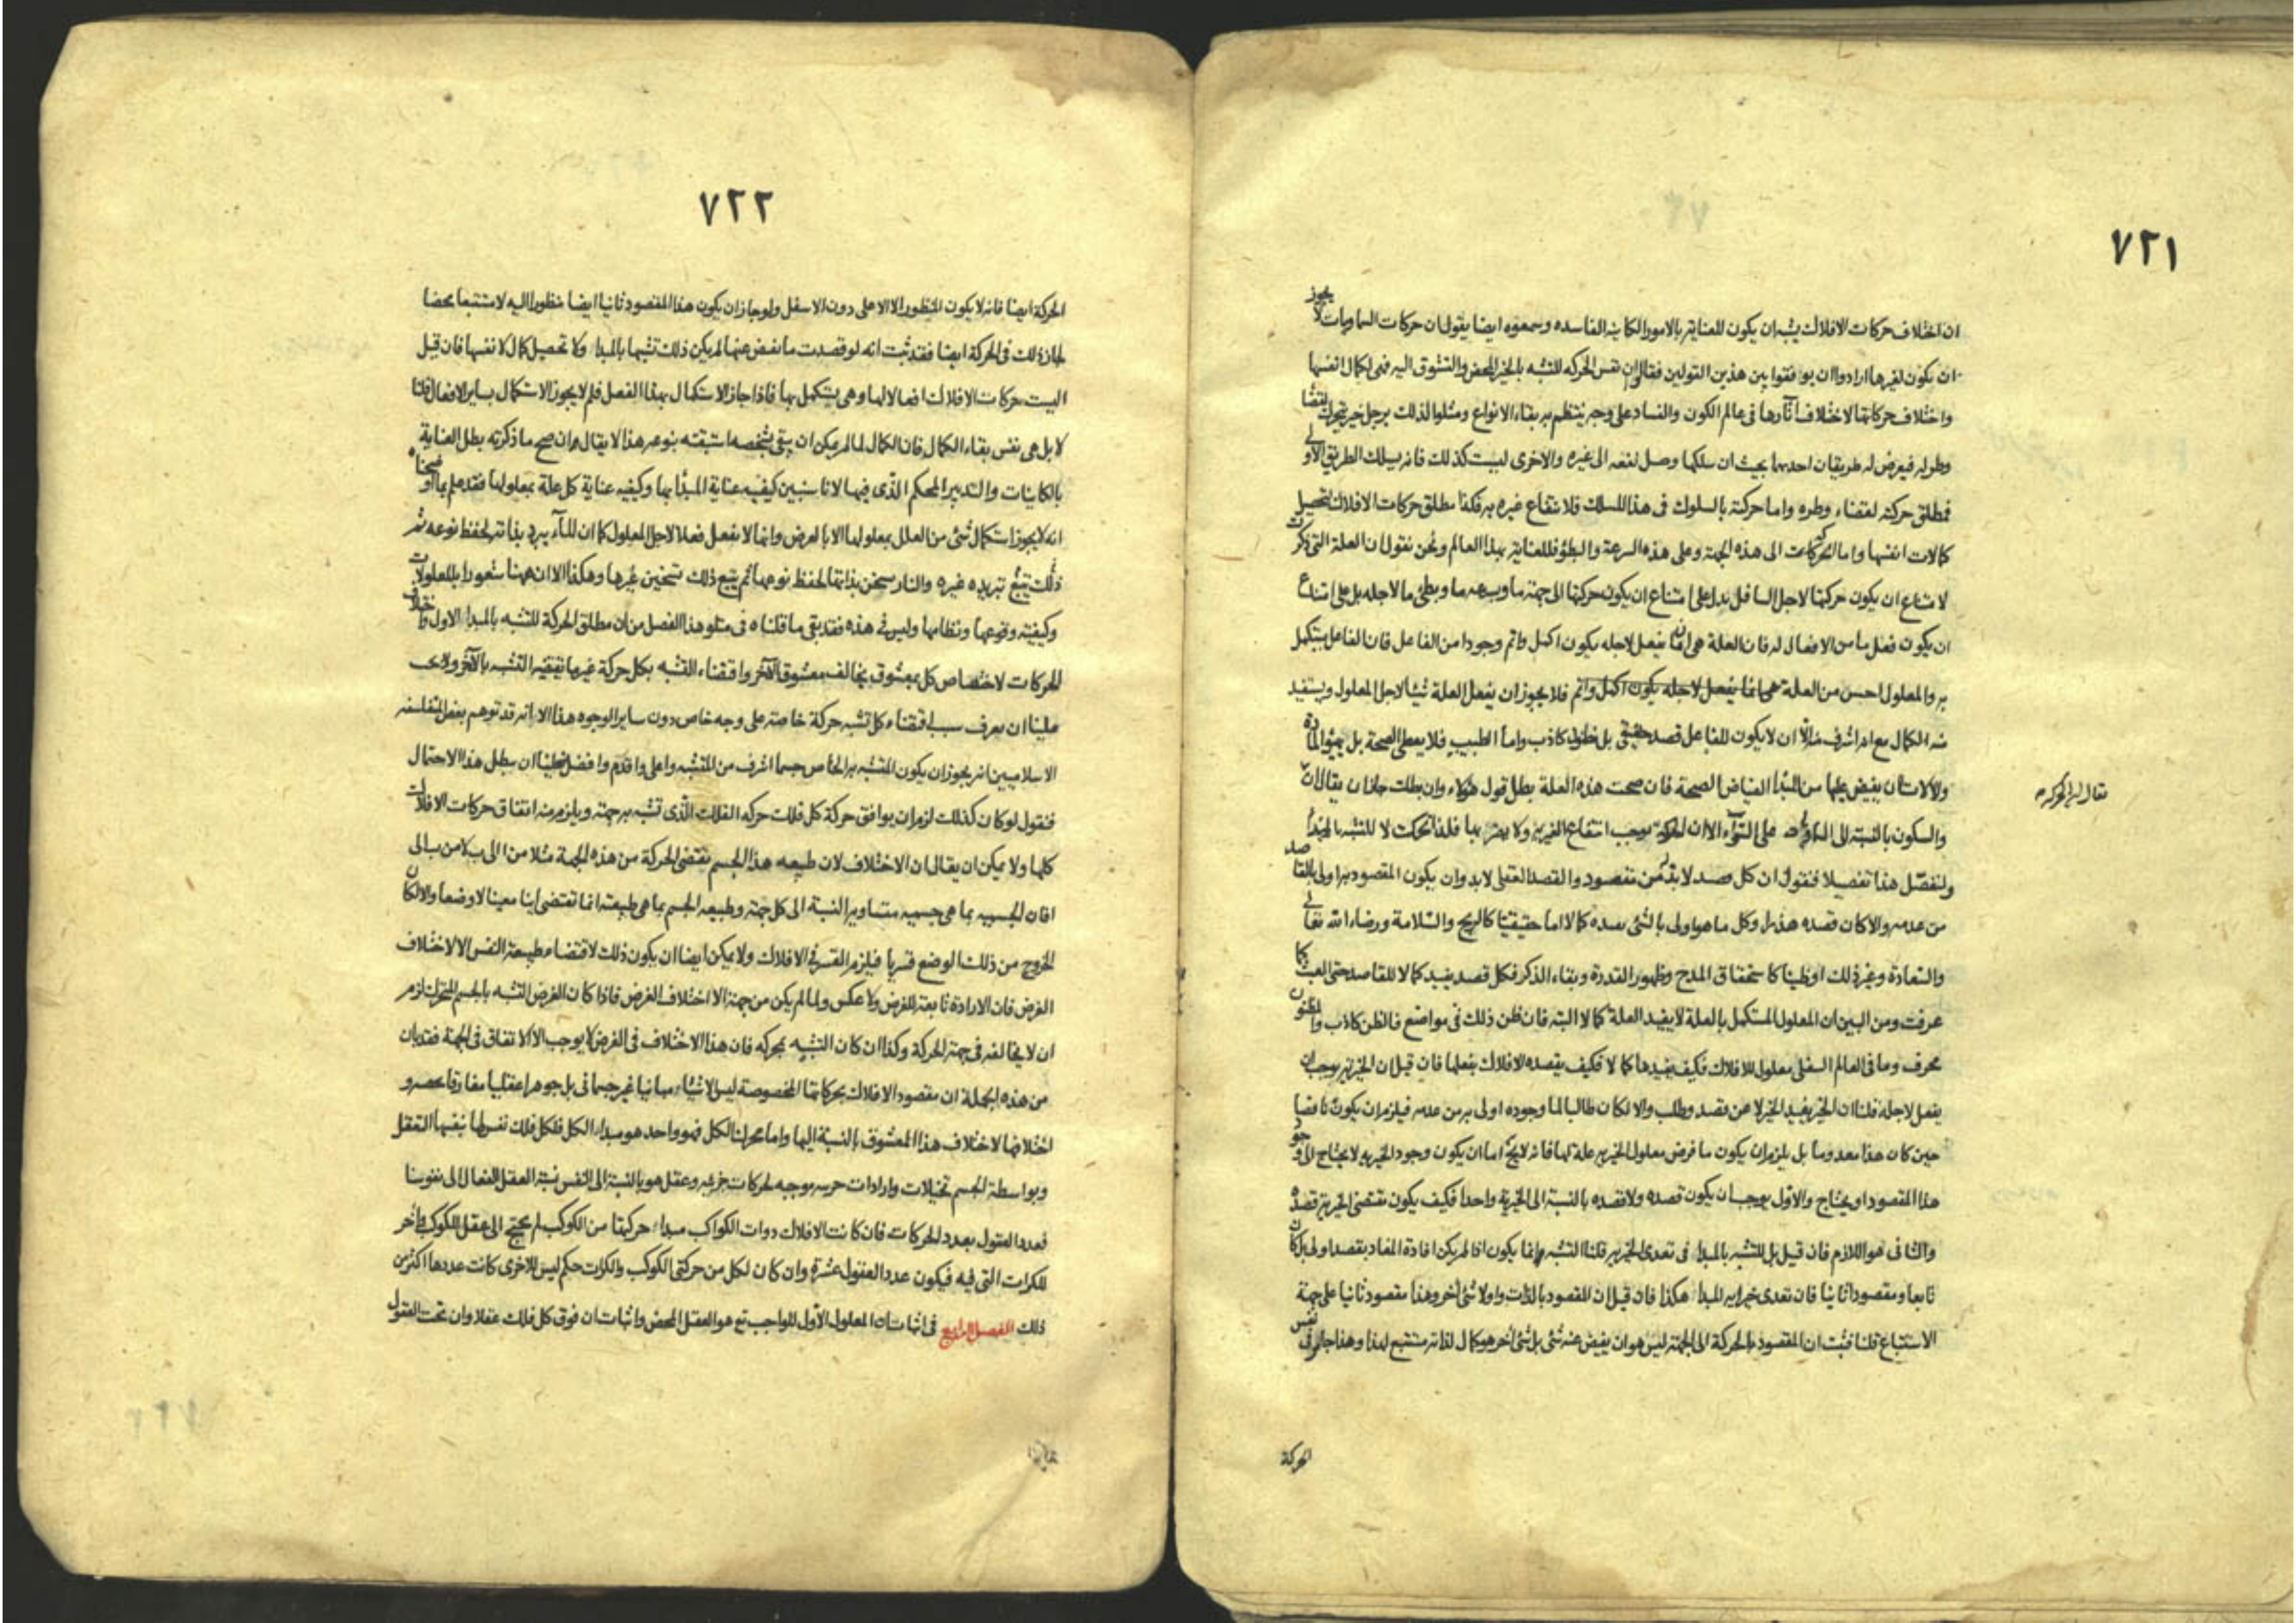 ٧٢١
ان اختلاف حركات الافلاك يشبه ان يكون للعناية بالامور الكاينه الفاسده وسمعوه ايضا يقول ان حركات السماويات لا يجوز
ان يكون لغيرها ارادوا ان يوفقوا بين هذين القولين فقالوا ان نفس الحركه للتشبه بالخير المحض والتشوق اليه فهى لكمال انفسها
واختلاف حركاتها لاختلاف آثارها فى عالم الكون والفساد على وجه ينتظم به بقاء الانواع ومثلوا لذلك برجل خير يتحرك لقضا
وطر له فيعرض له طريقان احدهما بحيث ان سلكها وصل نفعه الى غيره والاخرى ليست كذلك فانه يسلك الطريق الاولى
فمطلق حركته لقضاء وطره واما حركته بالسلوك فى هذا المسلك فلانتفاع غيره به فكذا مطلق حركات الافلاك لتحصيل
كمالات انفسها واما الحركات الى هذه الجهة وعلى هذه السرعة والبطؤ فللعناية بهذا العالم ونحن نقول ان العلة التى ذكرت
لامتناع ان يكون حركتها لاجل السافل يدل على امتناع ان يكون حركتها الى جهة ما وبسرعه ما وبطئ ما لاجله بل على امتناع
ان يكون فعل ما من الافعال له فان العلة هى ان ما يفعل لاجله يكون اكمل واتم وجودا من الفاعل فان الفاعل يستكمل
به والمعلول احسن من العلة فلا يجوز ان يفعل العلة شيئا لاجل المعلول ويستفيد
منه الكمال مع انه اشرف منه الا ان لا يكون للفاعل قصد حقيقى بل مظنون كاذب واما الطبيب فلا يعطى الصحة بل يهيؤ المادة
والآلات ان يفيض عليها من المبدأ الفياض الصحة فان صحت هذه العلة بطل قول هؤلاء وان بطلت جاز ان يقال ان
تقال له الحركه
والسكون بالنسبة الى على السواء الا ان الحركة يوجب انتفاع الغير به ولا يضر بها فلذا تحركت لا للتشبه بالمبدأ
ولنفصل هذا تفصيلا فنقول ان كل قصد لا بد له من مقصود والقصد العقلى لا بد وان يكون المقصود به اولى بالقاصد
من عدمه والا كان قصده هذرا وكل ما هو اولى بالشئ يفيده كمالا اما حقيقيا كالربح والسلامة ورضاء الله تعالى
والسعادة وغير ذلك او ظنيا كاستحقاق المدح وظهور القدرة وبقاء الذكر فكل قصد يفيد كمالا للقاصد حتى العبث كما
عرفت ومن البين ان المعلول المستكمل بالعلة لا يفيد العلة كمالا البته فان ظن ذلك فى مواضع فالظن كاذب والمظنون
محرف وما فى العالم السفلى معلول للافلاك فكيف يفيدها كمالا فكيف يقصده الافلاك بفعلها فان قيل ان الخيرية يوجب ان
يفعل لاجله قلنا ان الخير يفيد الخير لا عن قصد وطلب والا لكان طالبا لما وجوده اولى به من عدمه فيلزم ان يكون ناقصا
حين كان هذا معدوما بل يلزم ان يكون ما فرض معلول الخيرية علة لها فانه لا يخ اما ان يكون وجود الخيرية لا يحتاج الى وجود
هذا المقصود او يحتاج والاول يوجب ان يكون قصده ولا قصده بالنسبة الى الخيرية واحدا فكيف يكون مقتضى الخيرية قصده
والثانى هو اللازم فان قيل بل للتشبه بالمبدا فى تعدى الخيرية قلنا التشبه به انما يكون اذا لم يكن افادة المفاد بقصد اولى بل كان
تابعا ومقصودا ثانيا فان تعدى خيراته المبدا هكذا فان قيل ان المقصود بالذات واولا شئ آخر وهذا مقصود ثانيا على جهة
الاستتباع قلنا فثبت ان المقصود بالحركة الى الجهة ليس هو ان يفيض عنه شئ بل شئ آخر هو كمال لذاته مستتبع لهذا وهذا جار فى نفس
الحركة
٧٢٢
الحركة ايضا فانه لا يكون المنظور الا الاعلى دون الاسفل ولو جاز ان يكون هذا المقصود ثانيا ايضا منظورا اليه لا مستتبعا محضا
لجاز ذلك فى الحركة ايضا فقد ثبت انه لو قصدت ما يفيض عنها لم يكن ذلك تشبها بالمبدا ولا تحصيل كمال لانفسها فان قيل
اليست حركات الافلاك افعالا لها وهى يستكمل بها فاذا جاز الاستكمال بهذا الفصل فلم لا يجوز الاستكمال بساير الافعال قلنا
لا بل هى نفس بقاء الكمال فان الكمال لما لم يمكن ان يبقى بشخصه استبقته بنوعه هذا لا يقال ان صح ما ذكرته بطل العناية
بالكاينات والتدبير المحكم الذى فيها لانا سنبين كيفيه عناية المبدأ بها وكيفيه عناية كل علة بمعلولها فقد علم بما اوضحناه
انه لا يجوز استكمال شئ من العلل بمعلولها الا بالعرض وانها لا يفعل فعلا لاجل المعلول كما ان الماء يبرد بذاته لحفظ نوعه ثم
ذلك يتبع تبريده غيره والنار يسخن بذاتها لحفظ نوعها ثم يتبع ذلك تسخين غيرها وهكذا الا ان ههنا شعورا بالمعلولات
وكيفية وقوعها ونظامها وليس فى هذه فقد بقى ما قلناه فى متلو هذا الفصل من ان مطلق الحركة للتشبه بالمبدا الاول واختلاف
الحركات لاختصاص كل بمعشوق يخالف معشوق الآخر واقتضاء التشبه بكل حركة غير ما تقتضيه التشبه بالآخر ولا يجب
علينا ان نعرف سبب اقتضاء كل تشبه حركة خاصة على وجه خاص دون ساير الوجوه هذا الا انه قد توهم بعض المتفلسفه
الاسلاميين انه يجوز ان يكون المتشبه به الخاص جسما اشرف من المتشبه واعلى واقدم وافضل فعلينا ان نبطل هذا الاحتمال
فنقول لو كان كذلك لزم ان يوافق حركة كل فلك حركه الفلك الذى تشبه به جهة ويلزم منه اتفاق حركات الافلاك
كلها ولا يمكن ان يقال ان الاختلاف لان طبيعه هذا الجسم يقتضى الحركة من هذه الجهة مثلا من ا الى ب لا من ب الى
ا فان الجسميه بما هى جسميه متساوية النسبة الى كل جهة وطبيعه الجسم بما هى طبيعته انما تقتضى اينا معينا لا وضعا والا لكان
الخروج من ذلك الوضع قسريا فيلزم القسر فى الافلاك ولا يمكن ايضا ان يكون ذلك لاقتضاء طبيعة النفس الا لاختلاف
الغرض فان الارادة تابعة للغرض ولا عكس ولما لم يكن من جهة الا اختلاف الغرض فاذا كان الغرض التشبه بالجسم المتحرك لزم
ان لا يخالفه فى جهة الحركة وكذا ان كان التشبه بمحركه فان هذا الاختلاف فى الغرض لا يوجب الا الاتفاق فى الجهة فقد بان
من هذه الجملة ان مقصود الافلاك بحركاتها المخصوصة ليس الا شيئا مباينا غير جسمانى بل جوهرا عقليا مفارقا
اختلافها لاختلاف هذا المعشوق بالنسبة اليها واما محرك الكل فهو واحد هو مبداء الكل فلكل فلك نفس لها بنفسها التعقل
وبواسطة الجسم تخيلات وارادات موجبه لحركات جزئيه وعقل هو بالنسبة الى النفس نسبة العقل الفعال الى نفوسنا
فعدد العقول بعدد الحركات فان كانت الافلاك ذوات الكواكب مبداء حركتها من الكوكب لم يحتج الى عقل للكوكب وآخر
للكرات التى فيه فيكون عدد العقول عشرة وان كان لكل من حركتى الكوكب والكرات حكم ليس للاخرى كانت عددها اكثر من
ذلك الفصل الرابع فى اثبات ان المعلول الاول للواجب تع هو العقل المحض واثبات ان فوق كل فلك عقلا وان تحت العقول